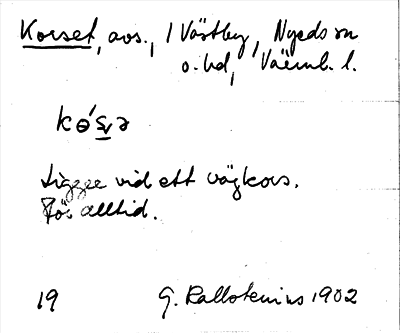 Korset, avs., i Västby, Nyeds sn
o. hd, Värml. l.
Ligger vid ett vägkors.
För alltid.
19 G. Kallstenius 1902